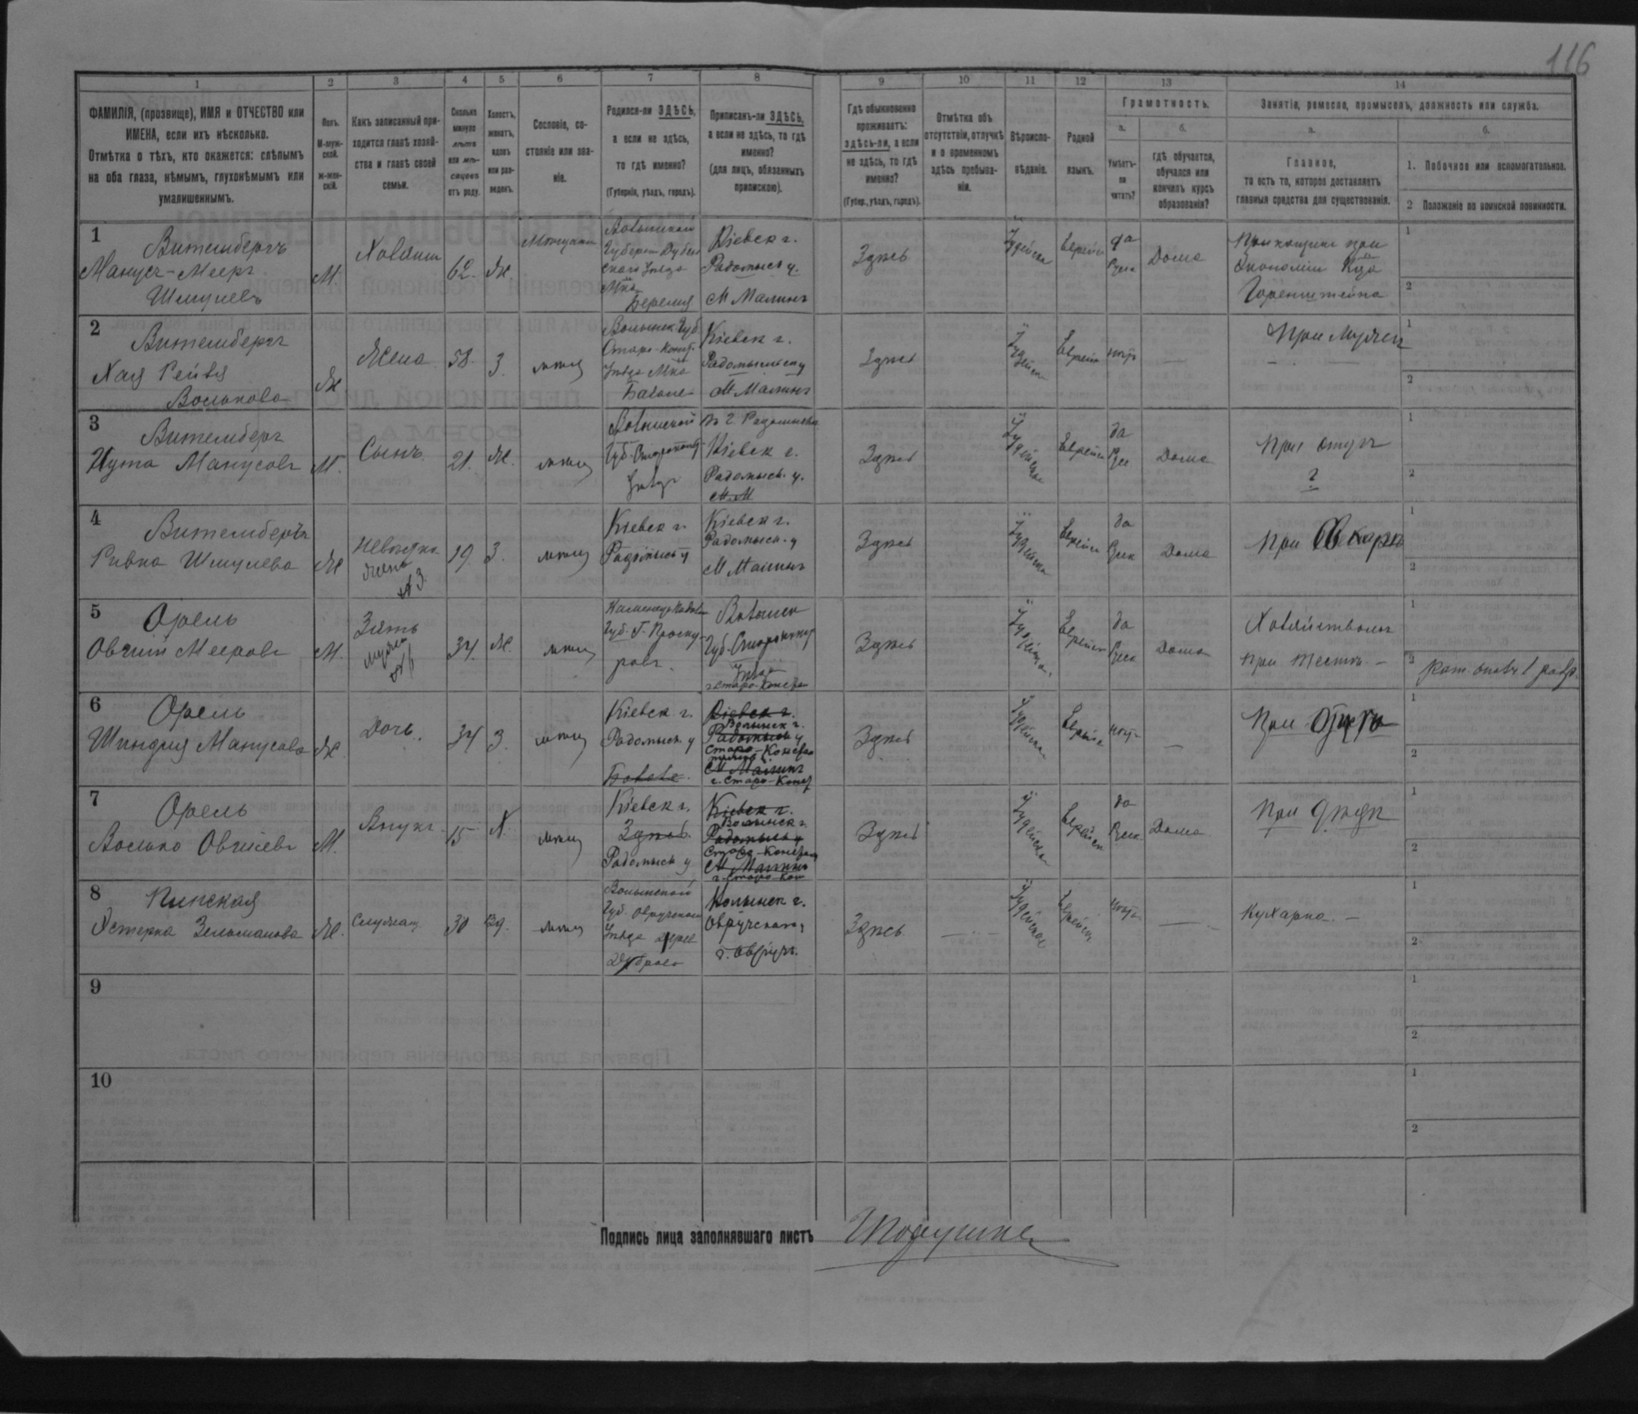 116
1
2
3
4
5
6
7
8
9
10
11
12
13
14
ФАМИЛІЯ, (прозвище), ИМЯ и ОТЧЕСТВО или
ИМЕНА, если ихъ нѣсколько.
Отмѣтка о тѣхъ, кто окажется: слѣпымъ
на оба глаза, нѣмымъ, глухонѣмымъ или
умалишеннымъ.
Полъ.
М-муж-
ской.
ж-жен-
скій.
Какъ записанный при-
ходится главѣ хозяй-
ства и главѣ своей
семьи.
Сколько
минуло
лѣтъ
или мѣ-
сяцевъ
отъ роду.
Холостъ,
женатъ,
вдовъ
или раз-
веденъ.
Сословіе, со-
стояніе или зва-
ніе.
Родился-ли ЗДѢСЬ,
а если не здѣсь,
то гдѣ именно?
(Губернія, уѣздъ, городъ).
Приписанъ-ли ЗДѢСЬ,
а если не здѣсь, то гдѣ
именно?
(для лицъ, обязанныхъ
припискою).
Гдѣ обыкновенно
проживаетъ:
здѣсь-ли, а если
не здѣсь, то гдѣ
именно?
(Губер., уѣздъ, городъ).
Отмѣтка объ
отсутствіи, отлучкѣ
и о временномъ
здѣсь пребыва-
ніи.
Вѣроиспо-
вѣданіе.
Родной
языкъ.
Грамотность.
а.
б.
Умѣетъ-
ли
читать?
гдѣ обучается,
обучался или
кончилъ курсъ
образованія?
Занятіе, ремесло, промыселъ, должность или служба.
а.
б.
Главное,
то есть то, которое доставляетъ
главныя средства для существованія.
1. Побочное или вспомогательное.
2 Положеніе по воинской повинности.
1
Витембергъ
Манусъ-Мееръ
Шмулевъ
М.
Хозяин
62
Ж
Мещанин
Волынской
Губерн Дубен
скаго Уѣзда
Мка
Кіевск г.
Радомысл у.
М Малинъ
Здѣсь
Іудейск
Еврейск
да
Русск
Дома
Прикащикъ при
Экономіи
Горенштейна
1
2
2
Витембергъ
Хая Рейзя
Волькова
Ж
Жена
58
З
мѣщ
Волынск Губ.
Старо-Конст.
Уѣзда Мка
Кіевск г.
Радомысльск у
М Малинъ
Здѣсь
Іудейск
Еврейск
нѣтъ
—
При мужѣ
1
2
3
Витембергъ
Нута Манусовъ
М.
Сынъ
21
Ж.
мѣщ
Волынской
Губ. Староконст
Уѣзд
Кіевск г.
Радомысл. у.
М. М
Здѣсь
Іудейск
Еврейск
да
Рус
Дома
При отцѣ
1
2
4
Витембергъ
Ривка Шмулева
Ж
Невѣстка
жена
№3
19
З.
мѣщ
Кіевск г.
Радомысл у
Кіевск г.
Радомысл. у
М Малинъ
Здѣсь
Іудейск
Еврейск
да
Русск
Дома
При
1
2
5
Орель
Овшій Мееровъ
М.
Зять
мужъ
№6
34
Ж
мѣщ
Губ. Г. Проску-
ровъ.
Волынск
Губ. Староконст
Уѣзд
г. Старо-Конст
Здѣсь
Іудейск
Еврейск
да
Русск
Дома
При тестѣ —
1
2
6
Орель
Шиндля Манусова
Ж
Дочь
34
З
мѣщ
Кіевск г.
Радомысл у
Кіевск г.
Волынск г.
Радомысл у
Старо-Конст
М Малинъ
г. Старо-Конст
Здѣсь
Іудейск
Еврейск
нѣтъ
—
При
1
2
7
Орель
Волько Овшіевъ
М.
Внукъ
15
Х
мѣщ
Кіевск г.
Здѣсь
Радомысл у
Кіевск г.
Волынск г.
Радомысл у
Старо-Конст
М Малинъ
г. Старо-Кон
Здѣсь
Іудейск
Еврейск
да
Русск
Дома
При дѣдѣ
1
2
8
Пинская
Эстерка Зельмановна
Ж.
Служащ
30
Вд.
мѣщ
Волынской
Губ. Овручскаго
Уѣзда дерев
Волынск г.
Овручскаго
г. Овручъ.
Здѣсь
—
Іудейск
Еврейск
нѣтъ
—
Кухарка —
1
2
9
1
2
10
1
2
Подпись лица заполнявшаго листъ